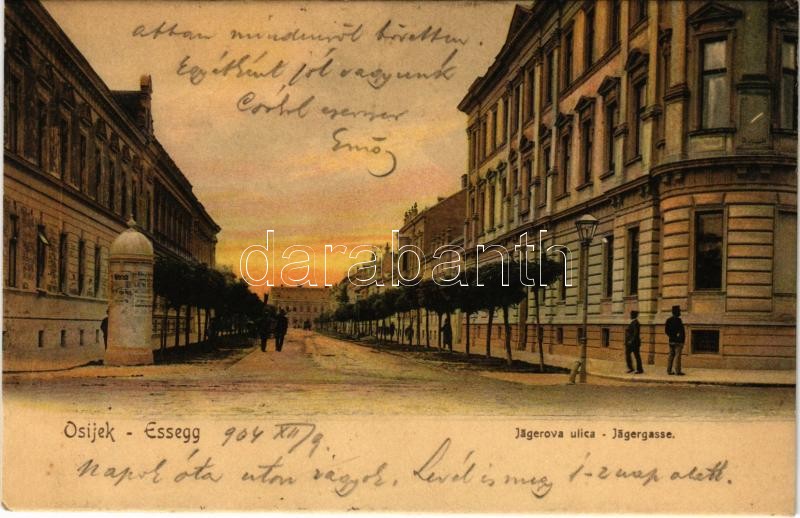 abban mindenről bővebben.
Egyébként jól vagyunk
Csókol ezerszer
Ernő
darabanth
Osijek - Essegg 904 XII/9.
Jägerova ulica - Jägergasse.
Napok óta uton vagyok. Levél is meg 1-2 nap alatt.